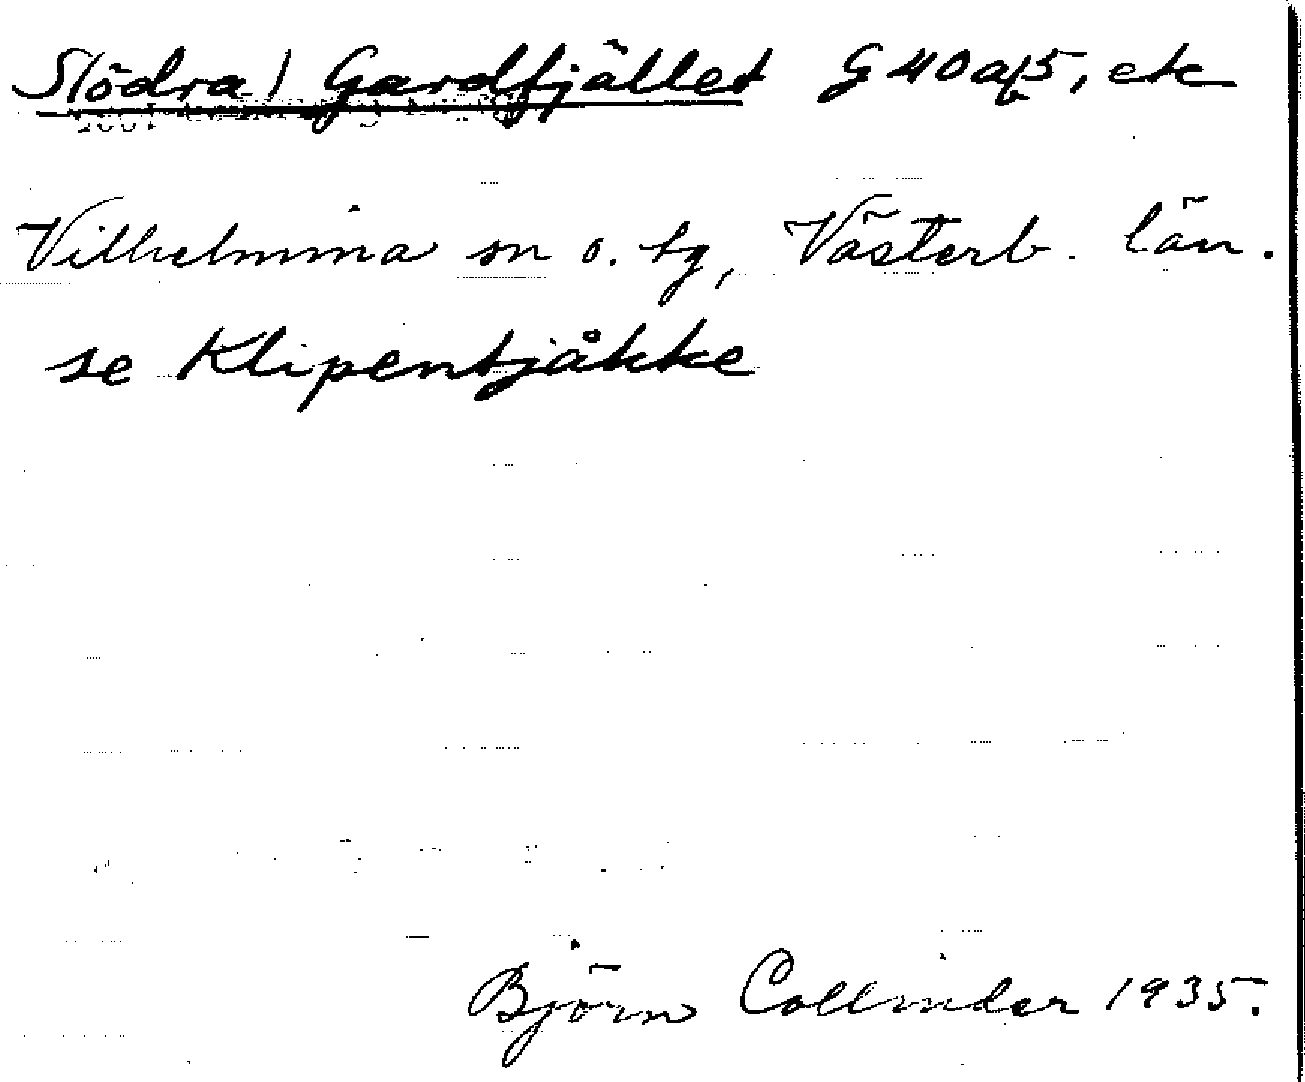 S(ödra) Gardfjället G 40 a/5, etc
Vilhelmina sn o. tg, Västerb. län.
se Klipentjåkke
Björn Collinder 1935.